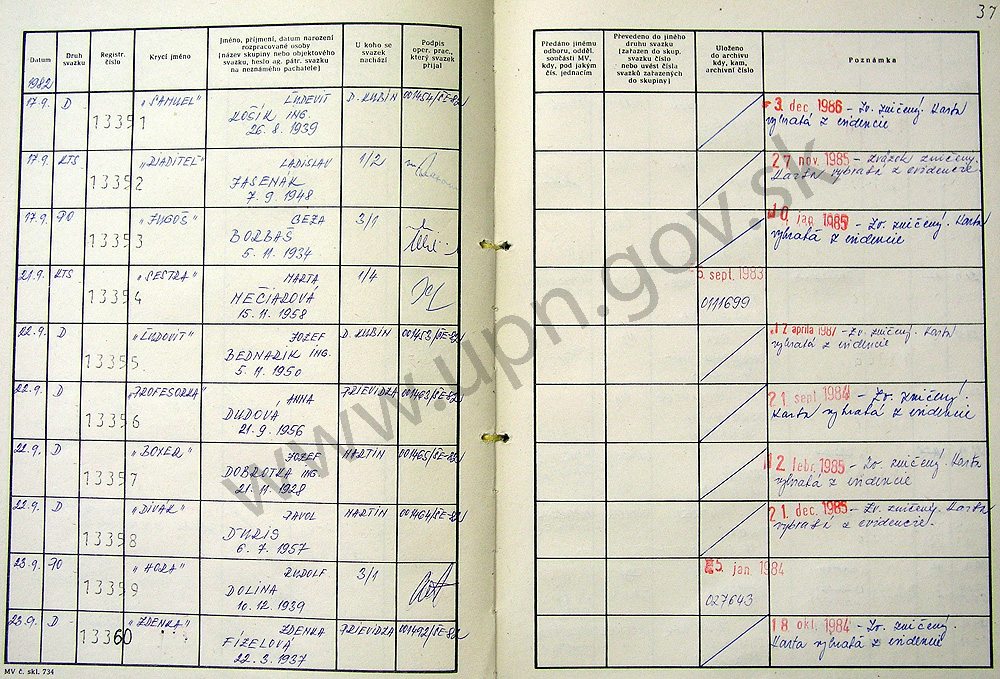 37
Datum
Druh svazku
Registr. číslo
Krycí jméno
Jméno, příjmení, datum narození
rozpracované osoby
(název skupiny nebo objektového
svazku, heslo ag. pátr. svazku
na neznámého pachatele)
U koho se
svazek
nachází
Podpis
oper. prac.,
který svazek
přijal
Předáno jinému
odboru, odděl.
součásti MV,
kdy, pod jakým
čís. jednacím
Převedeno do jiného
druhu svazku
(zařazen do skup.
svazku číslo
nebo uvést čísla
svazků zařazených
do skupiny)
Uloženo
do archivu
kdy, kam,
archivní číslo
Poznámka
1982
17.9. D 13351 "SAMUEL" ĽUDEVÍT D. KUBÍN 001454/ČE-82
KOŠÍK ING.
26. 8. 1939
3. dec 1986 - Zv. zničený. Karta
vybratá z evidencie
17.9. KTS 13352 "RIADITEĽ" LADISLAV 1/2
JASENÁK
7. 9. 1948
27 nov. 1985 - Zväzok zničený.
Karta vybratá z evidencie.
17.9. PO 13353 "JUGOŠ" GEZA 3/1
BORBAŠ
5. 11. 1934
10. jan 1985 - Zv. zničený. Karta
vybratá z evidencie
21.9. KTS 13354 "SESTRA" MARTA 1/4
MEČIAROVÁ
15. 11. 1958
5. sept. 1983
0111699
22.9. D 13355 "ĽUDOVÍT" JOZEF D. KUBÍN 001453/ČE-82
BEDNARIK ING.
5. 11. 1950
apríla 1987 - Zv. zničený. Karta
vybratá z evidencie
22.9. D 13356 "PROFESORKA" ANNA PRIEVIDZA 001463/ČE-82
DUDOVÁ
21. 9. 1956
21 sept 1984 - Zv. zničený.
Karta vybratá z evidencie
22.9. D 13357 "BOXER" JOZEF MARTIN 001465/ČE-82
DOBROTKA ING
21. 11. 1928
12. febr. 1985 - Zv. zničený. Karta
vybratá z evidencie
22.9. D 13358 "DIVÁK" PAVOL MARTIN 001464/ČE-82
ĎURIS
6. 7. 1957
21. dec. 1985 - Zv. zničený. Karta
vybratá z evidencie.
23.9. PO 13359 "HORA" RUDOLF 3/1
DOLINA
10. 12. 1939
5. jan 1984
027643
23.9. D 13360 "ZDENKA" ZDENKA PRIEVIDZA 001492/ČE-82
FÍZELOVÁ
22. 3. 1937
18 okt. 1984 - Zv. zničený.
Karta vybratá z evidencie
MV č. skl. 734
www.upn.gov.sk